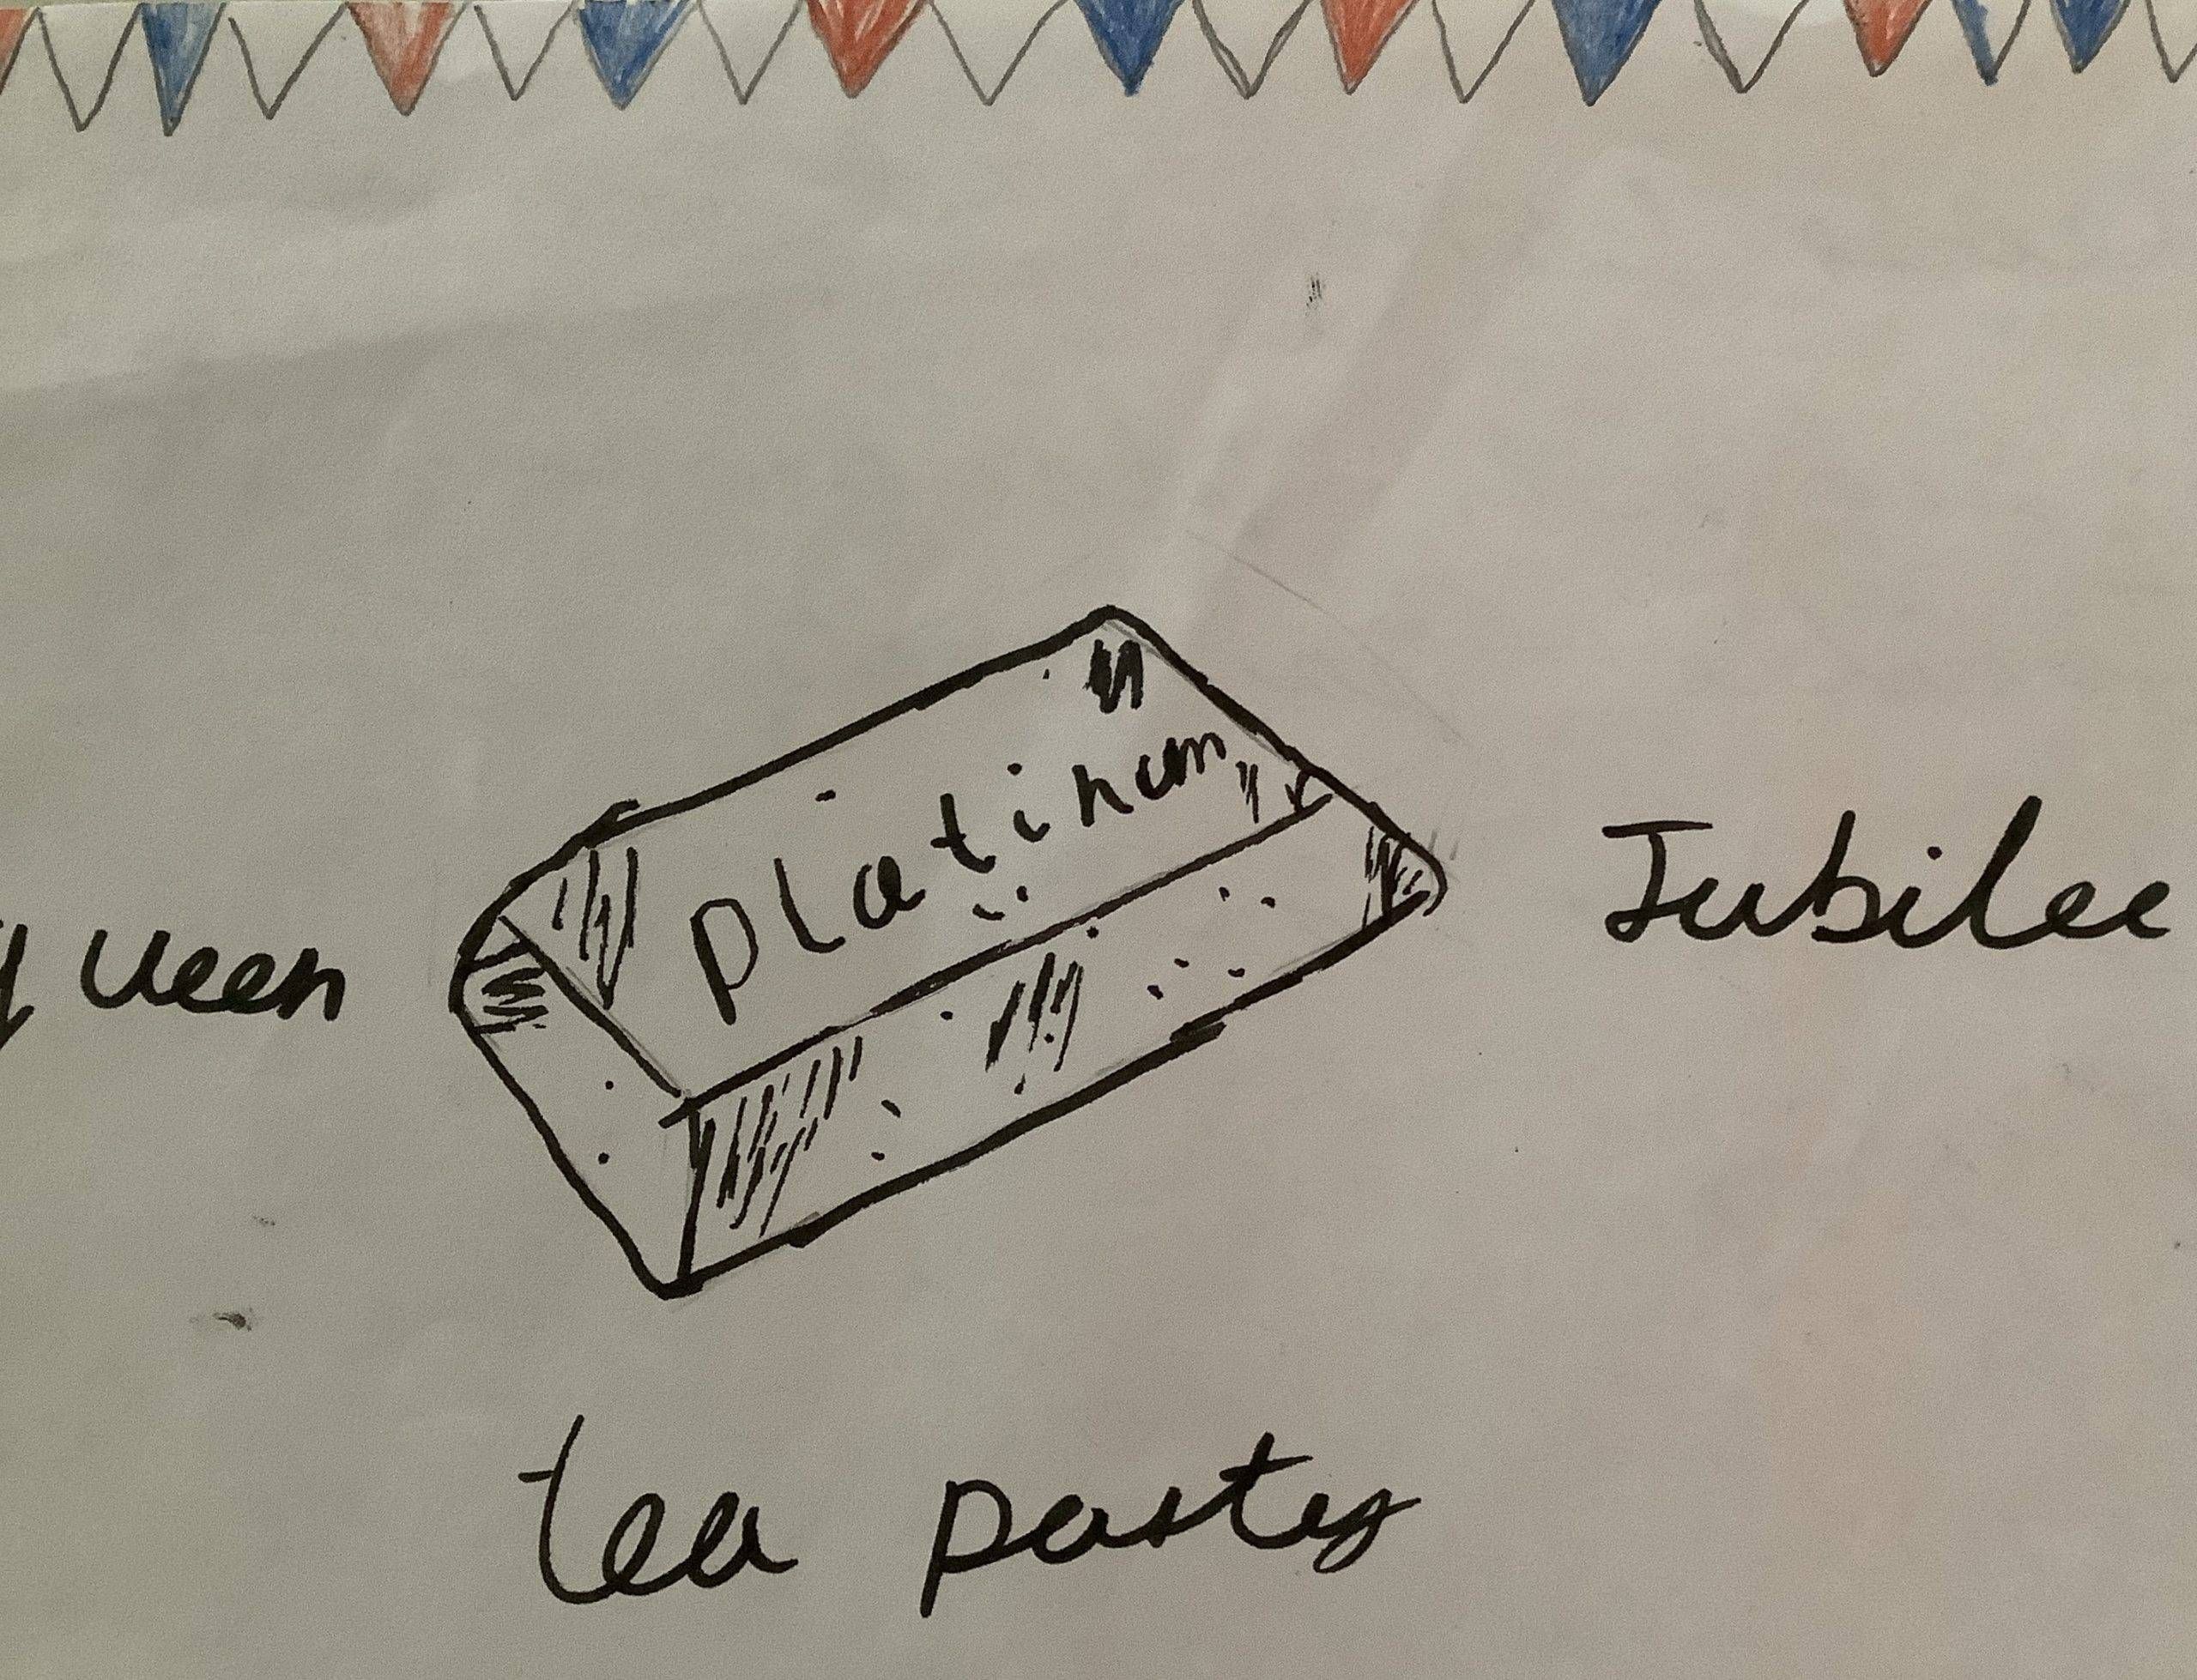 queen platinum Jubilee
tea party